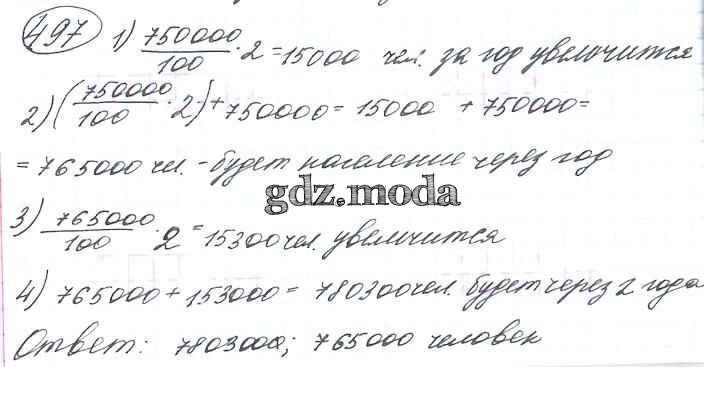 497 1) 750000/100 · 2 = 15000 чел. за год увеличится
2) (750000/100 · 2) + 750000 = 15000 + 750000 =
= 765000 чел. - будет население через год
gdz.moda
3) 765000/100 · 2 = 15300 чел. увеличится
4) 765000 + 153000 = 780300 чел. будет через 2 года
Ответ: 7803000; 765000 человек